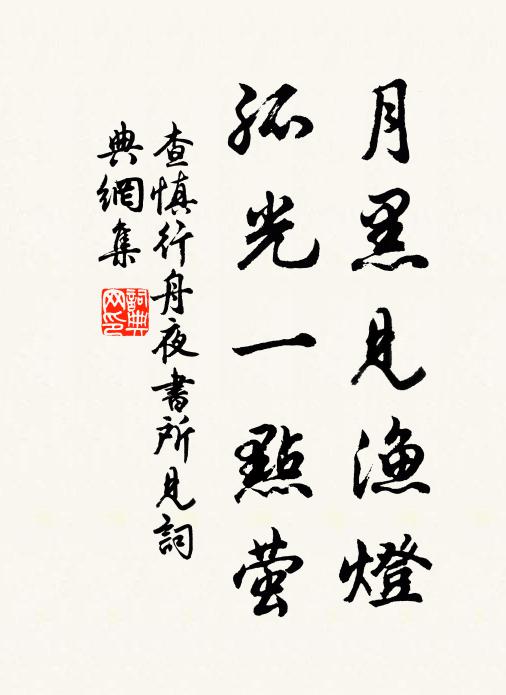 月黑見漁燈
孤光一點萤
查慎行舟夜書所見詞
典網集
詞典
网印